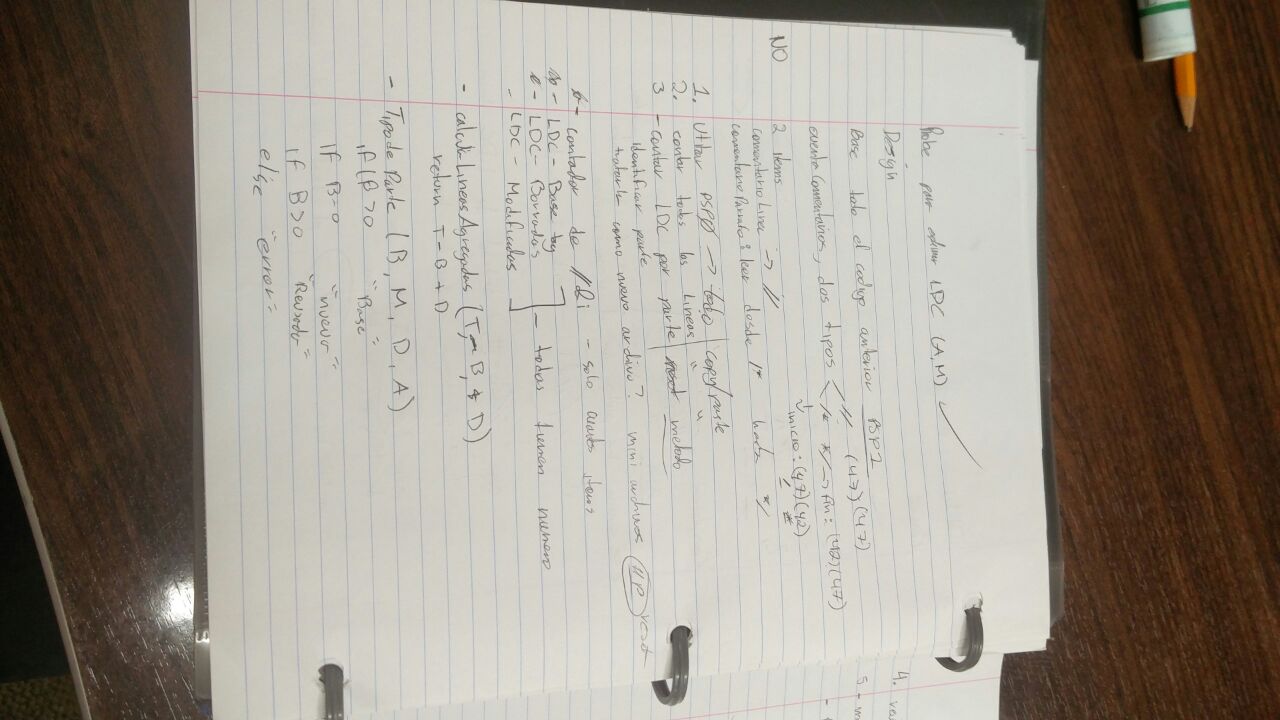 Probe para estimar LDC (A, M) ✓
Design
Base todo el codigo anterior PSP1
cuenta comentarios, dos tipos < // (47)(47)
/* */ → fin: (42)(47)
↓ inicio: (47)(42)
NO
2 items
comentarioLinea → //
comentarioParrafo: leer desde /* hasta */
1. Utilizar PSP0 → todo | copy/paste
2. contar todas las lineas " "
3 - contar LDC por parte | metodo
identificar parte
tratarla como nuevo archivo? mini archivos
- contador de //&i - solo cuantos items
- LDC - Base
- LDC - Borradas
- LDC - Modificadas
] - todas tienen numero
- calculaLineasAgregadas (T, B, D)
return T - B + D
- Tipo de Parte (B, M, D, A)
if (B > 0 "Base"
if B = 0 "nueva"
if B > 0 "Reusada"
else "error"
4.
5.